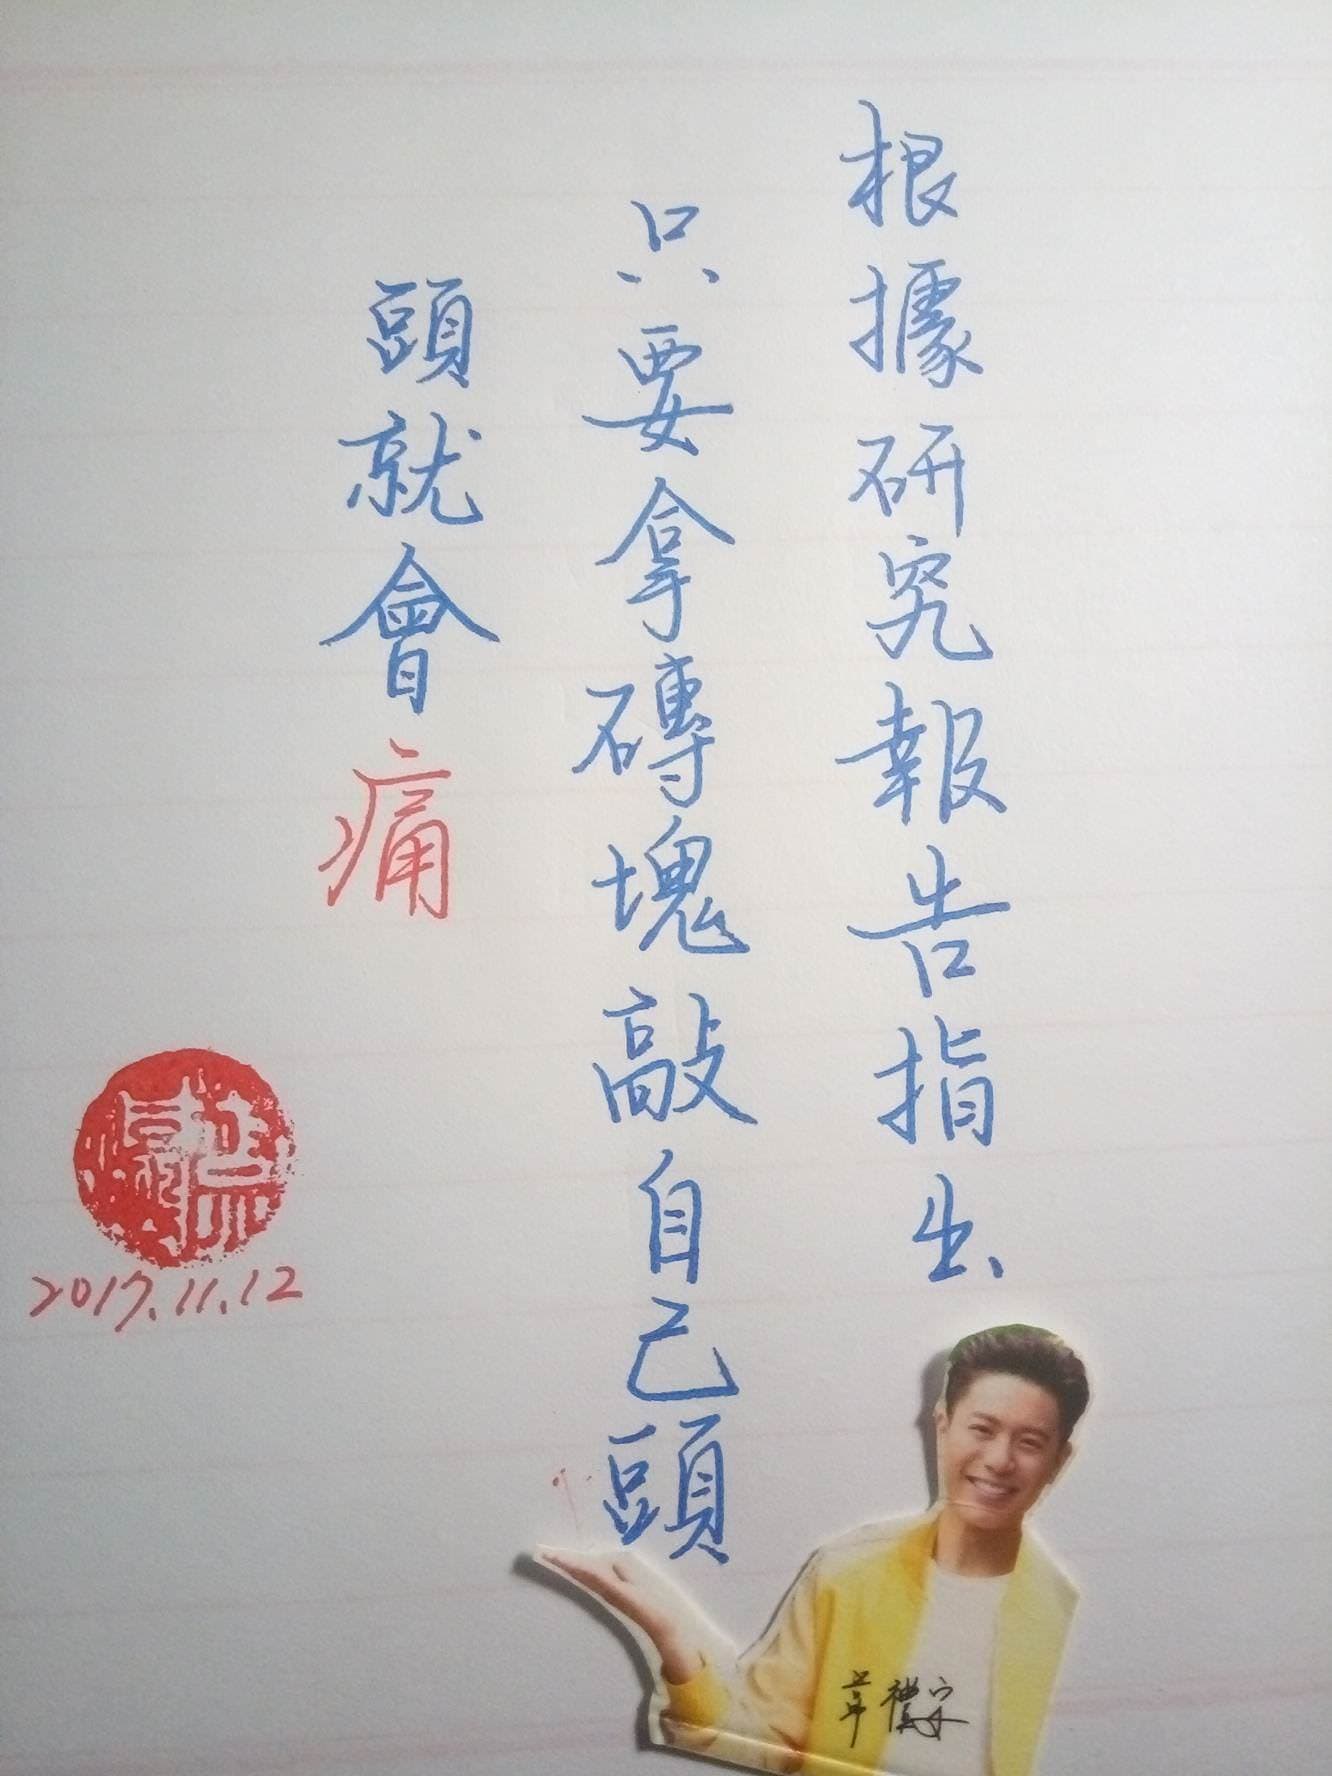 根據研究報告指出
只要拿磚塊敲自己頭
頭就會痛
2017.11.12
韋禮安